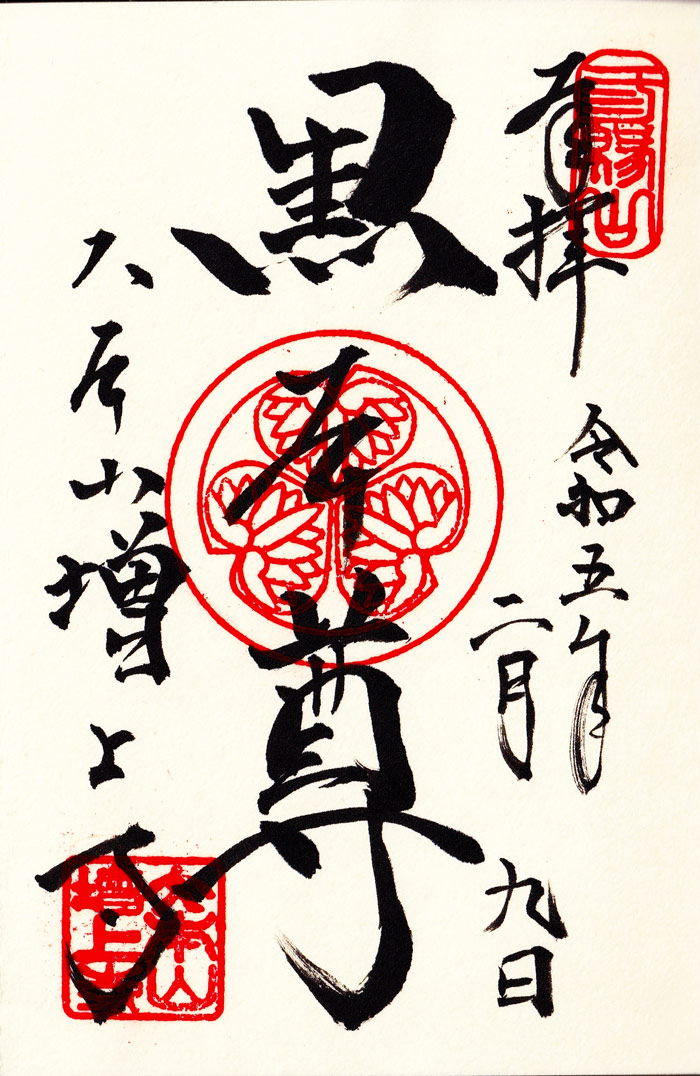 奉拝
令和五年
二月
九日
黒本尊
大本山増上寺
三縁山
大本山
増上寺